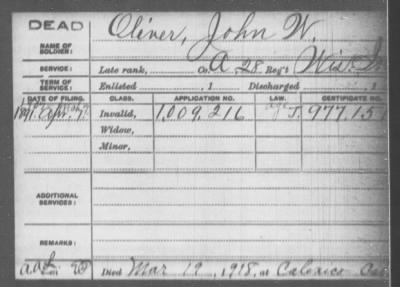 DEAD
Oliver, John W.
NAME OF SOLDIER:
SERVICE: Late rank, Co. A 28 Reg't Wis. In
TERM OF SERVICE: Enlisted , 1 Discharged , 1
DATE OF FILING. CLASS. APPLICATION NO. LAW. CERTIFICATE NO.
1891, Apr. 7 Invalid, 1,009,216 977,15
Widow,
Minor,
ADDITIONAL SERVICES:
REMARKS:
Died Mar 19, 1918, at Calexico Cal